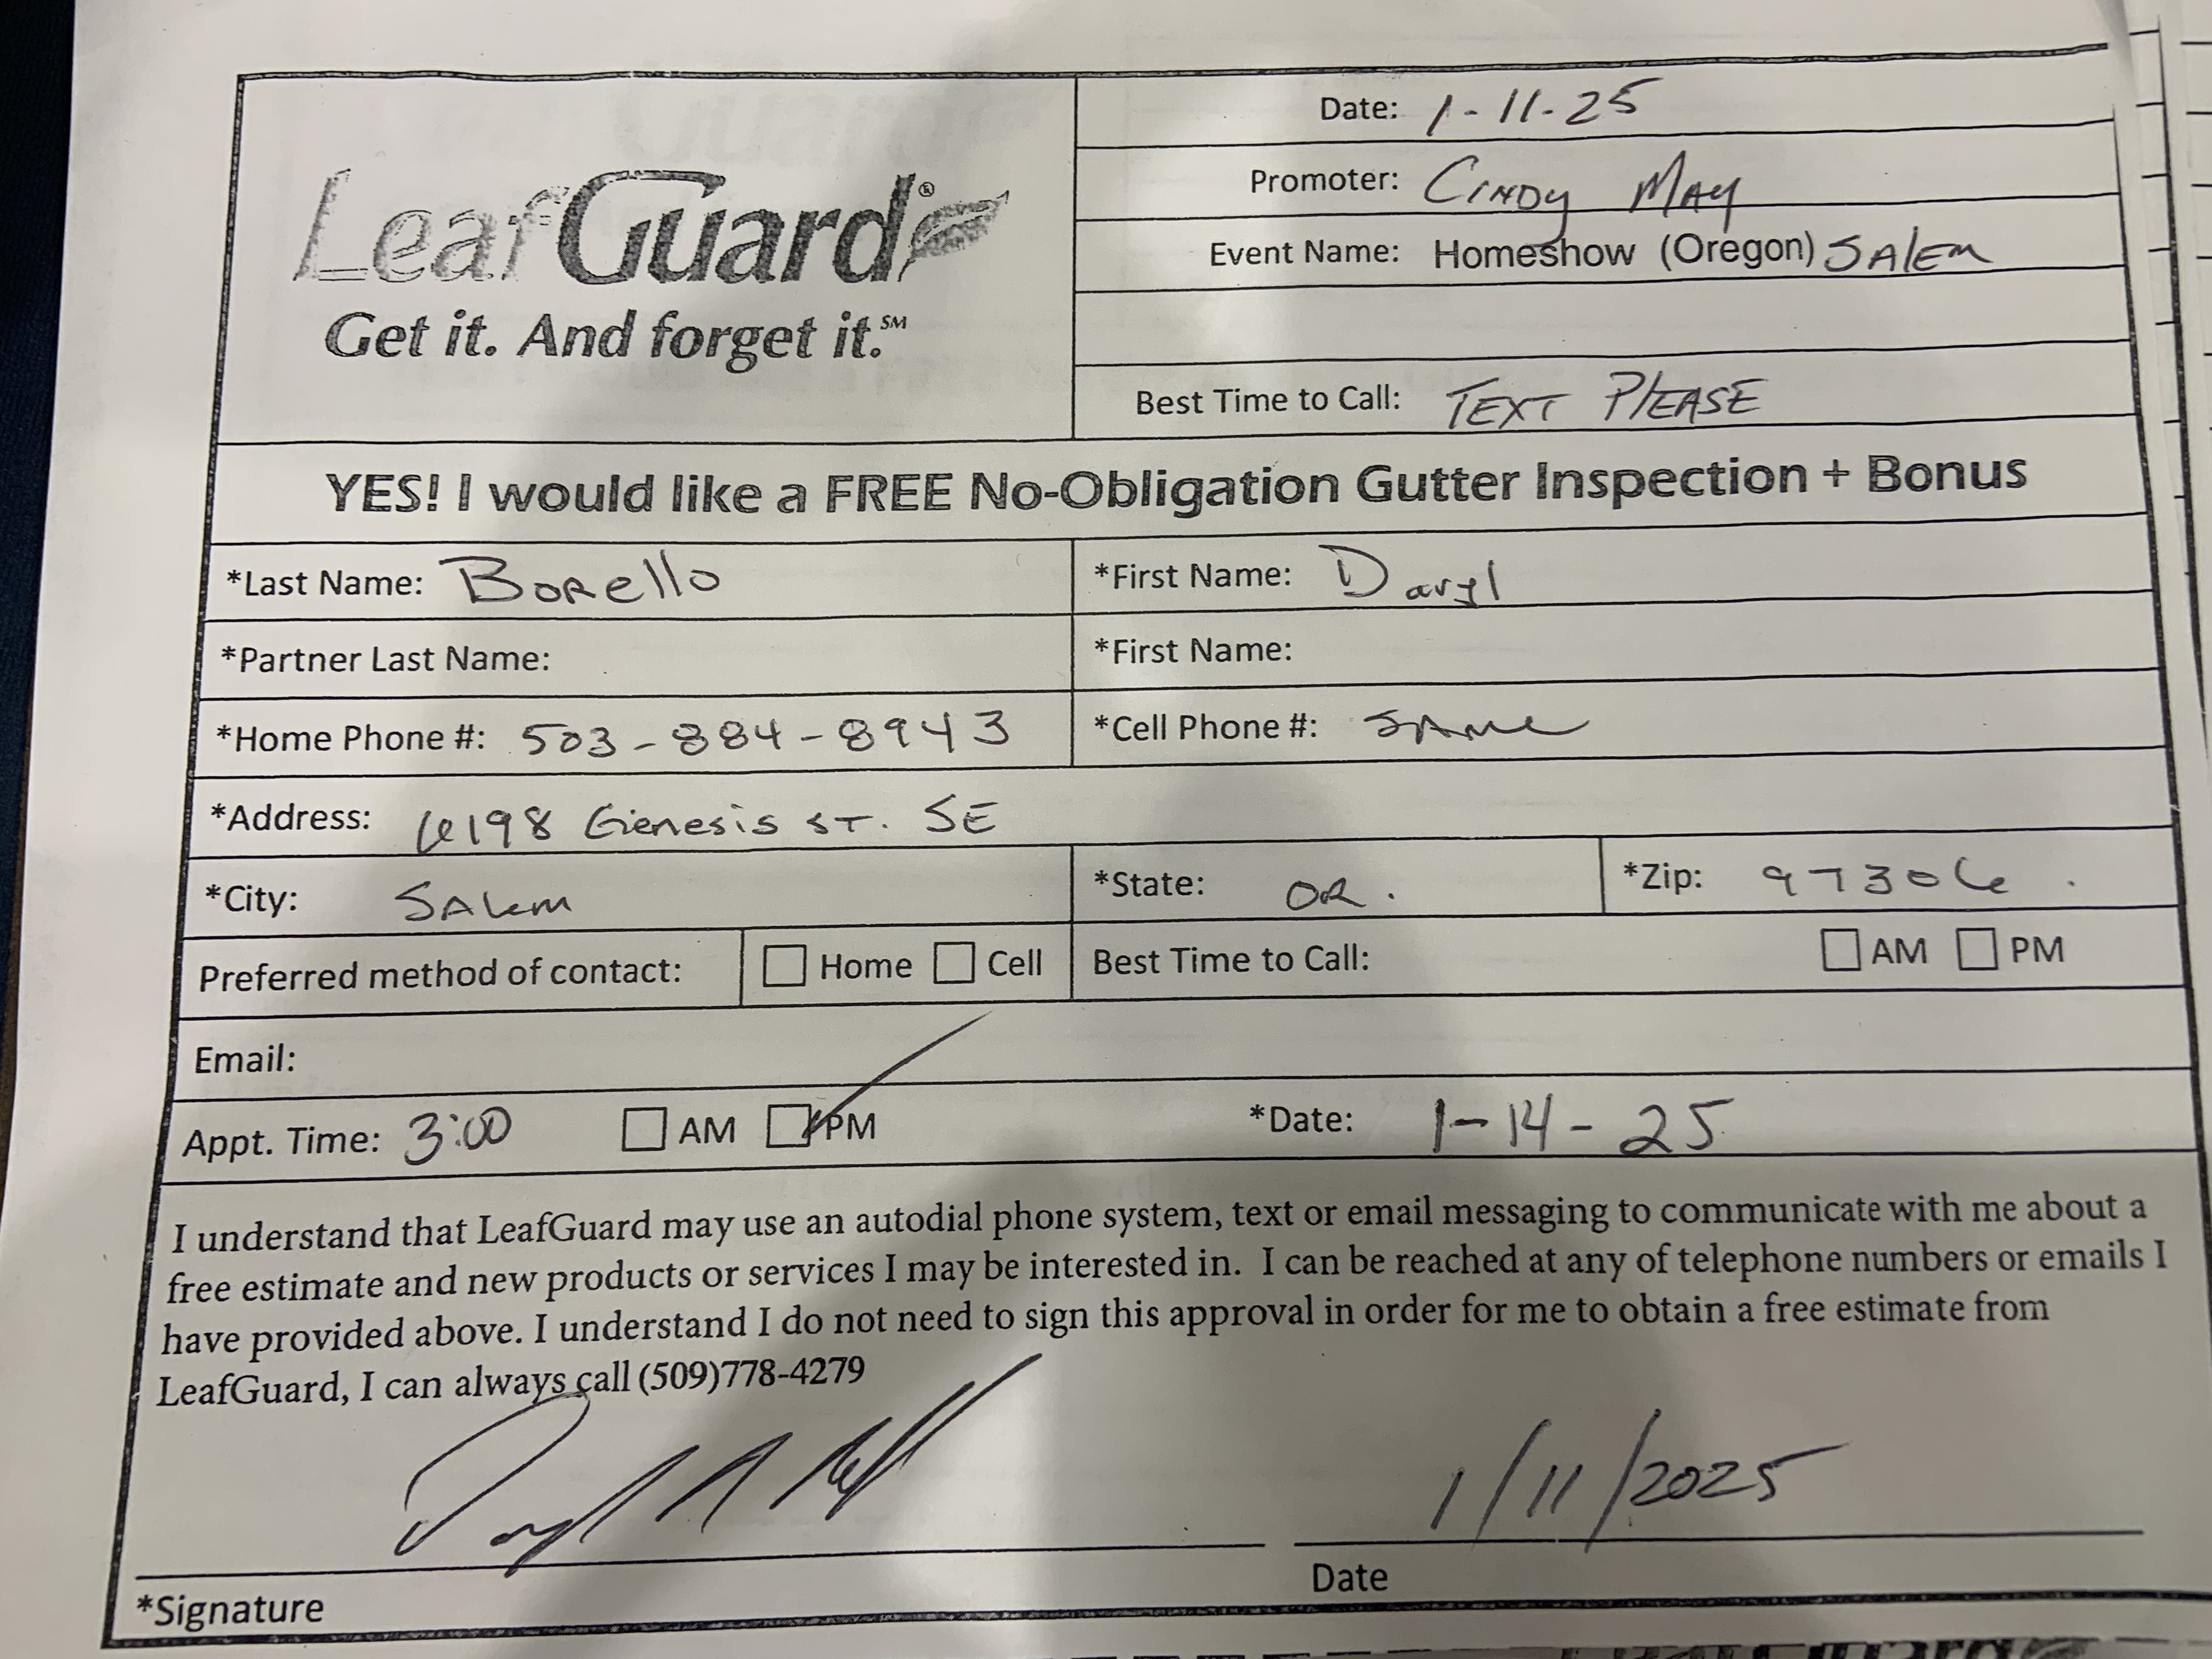 LeafGuard®
Get it. And forget it.℠
Date: 1-11-25
Promoter: Cindy May
Event Name: Homeshow (Oregon) Salem
Best Time to Call: Text Please
YES! I would like a FREE No-Obligation Gutter Inspection + Bonus
*Last Name: Borello *First Name: Daryl
*Partner Last Name: *First Name:
*Home Phone #: 503-884-8943 *Cell Phone #: Same
*Address: 6198 Genesis St. SE
*City: Salem *State: OR. *Zip: 97306.
Preferred method of contact: Home Cell Best Time to Call: AM PM
Email:
Appt. Time: 3:00 AM PM *Date: 1-14-25
I understand that LeafGuard may use an autodial phone system, text or email messaging to communicate with me about a
free estimate and new products or services I may be interested in. I can be reached at any of telephone numbers or emails I
have provided above. I understand I do not need to sign this approval in order for me to obtain a free estimate from
LeafGuard, I can always call (509)778-4279
1/11/2025
*Signature Date